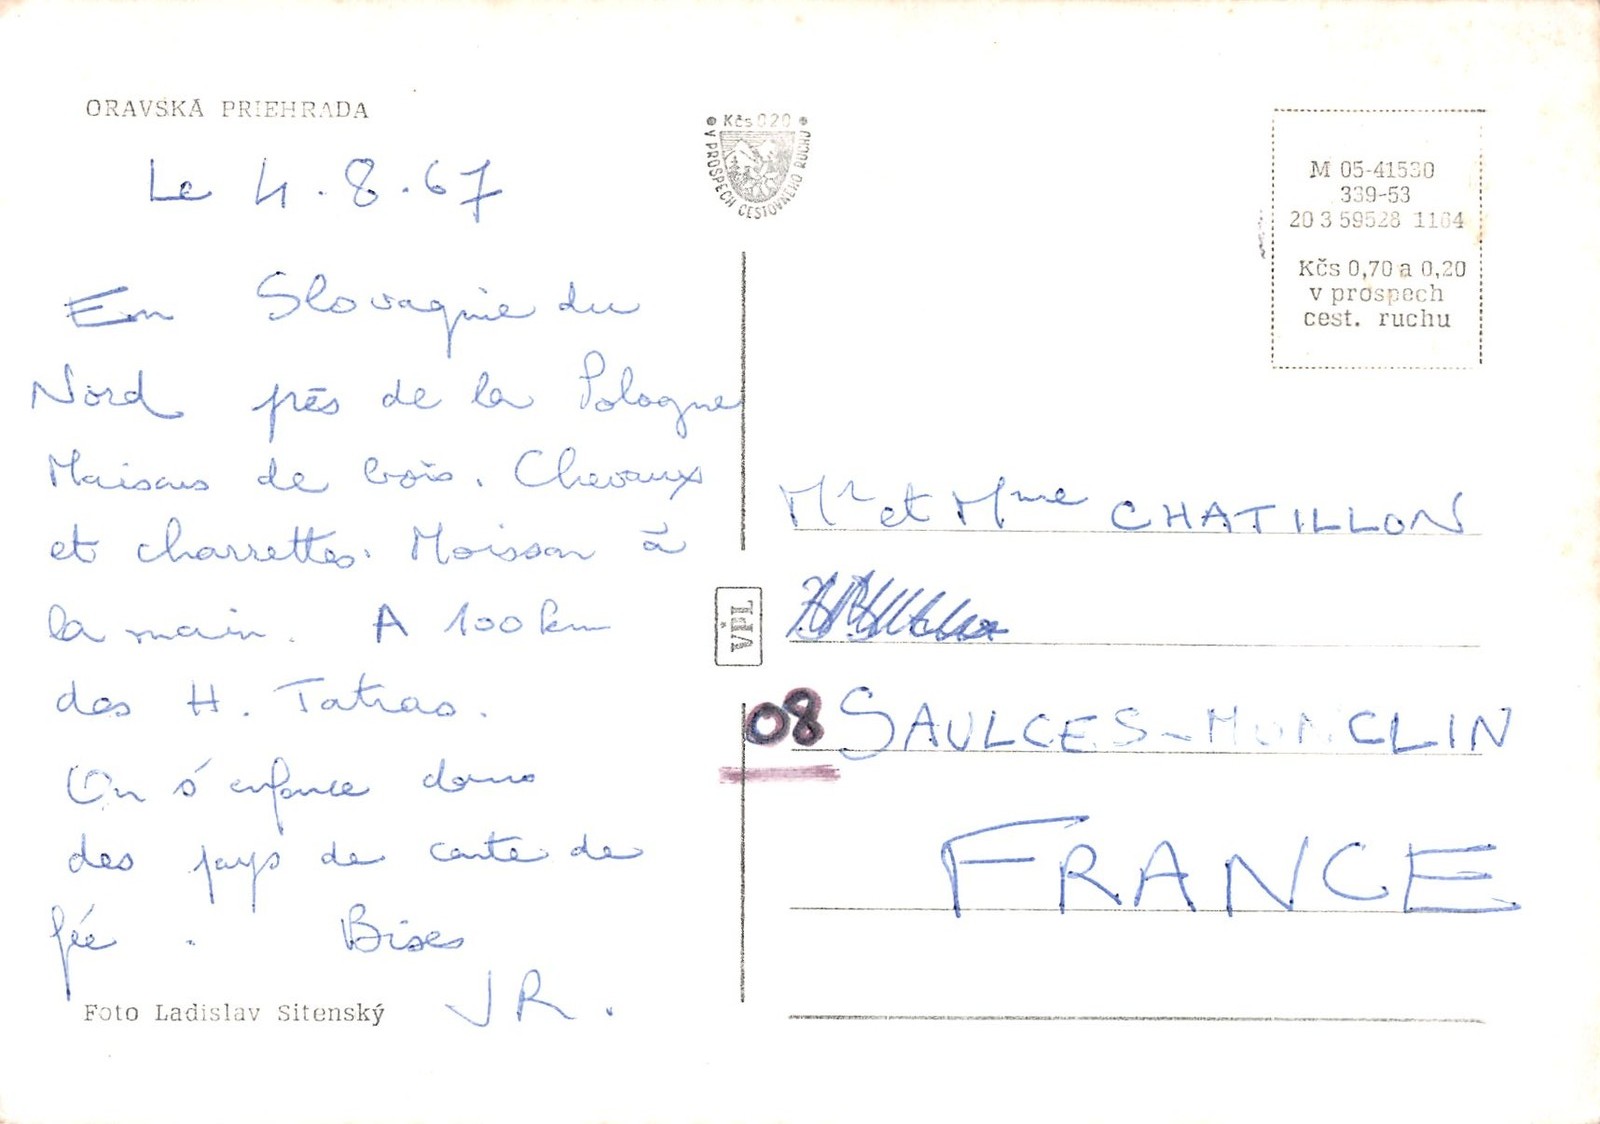 ORAVSKÁ PRIEHRADA
Le 4.8.67
En Slovaquie du
Nord près de la Pologne
Maisons de bois. Chevaux
et charrettes. Moisson à
la main. A 100 km
des H. Tatras.
On s'enfonce dans
des pays de conte de
fée. Bises
JR.
Foto Ladislav Sitenský
Kčs 020
V PROSPECH CESTOVNÉHO RUCHU
VPL
M 05-41530
339-53
20 3 59528 1164
Kčs 0,70 a 0,20
v prospech
cest. ruchu
Mr et Mme CHATILLON
08 SAULCES-MONCLIN
FRANCE